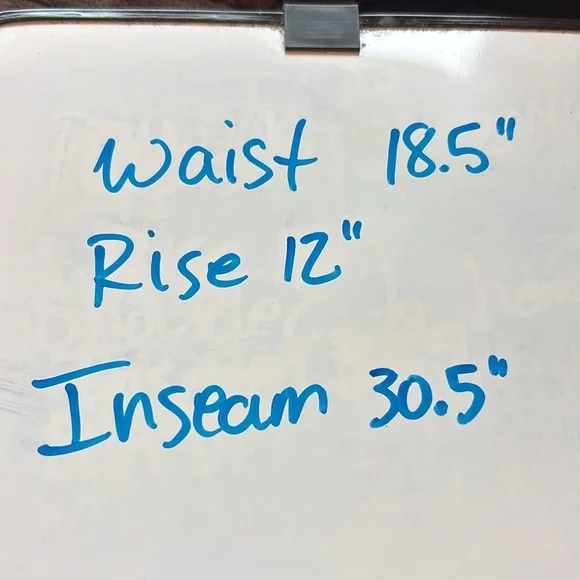 Waist 18.5"
Rise 12"
Inseam 30.5"